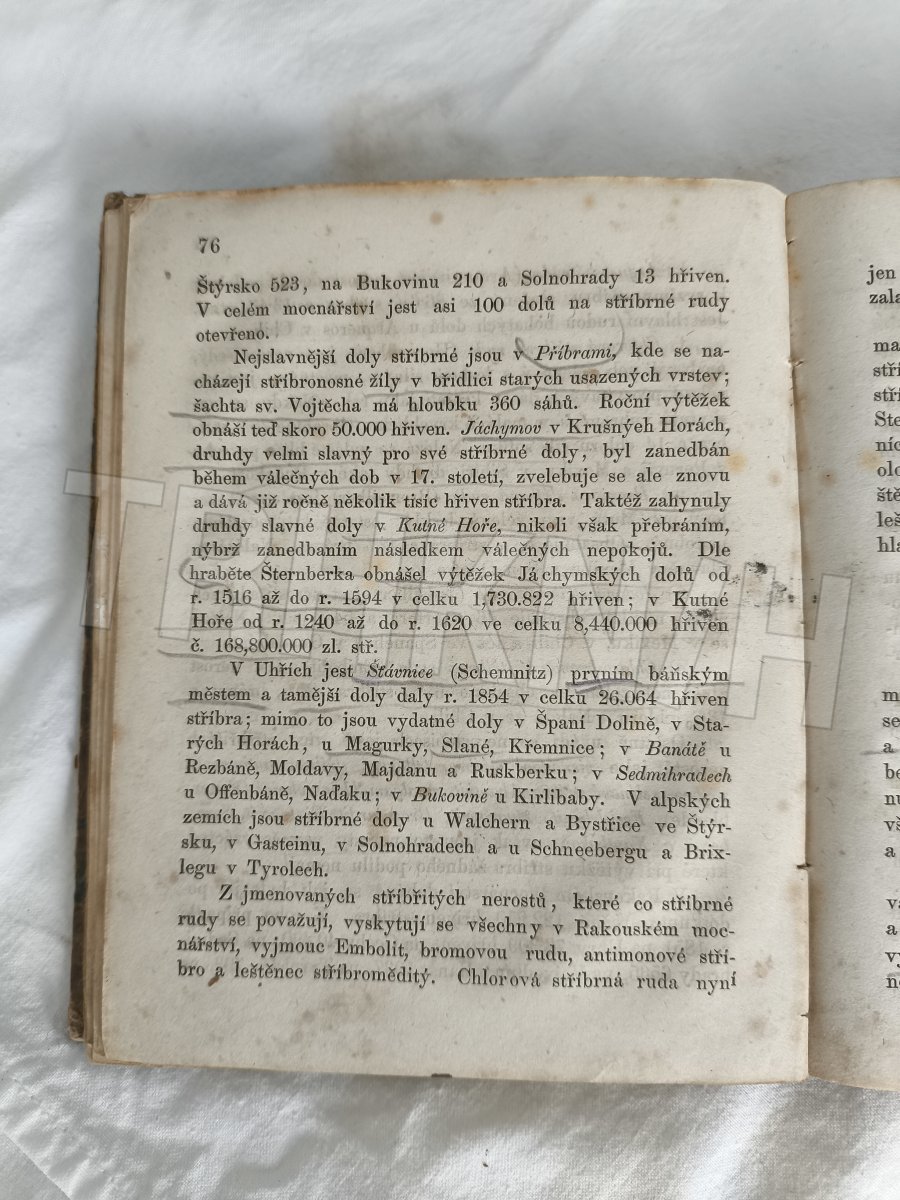 76
Štýrsko 523, na Bukovinu 210 a Solnohrady 13 hřiven.
V celém mocnářství jest asi 100 dolů na stříbrné rudy
otevřeno.
Nejslavnější doly stříbrné jsou v Příbrami, kde se na-
cházejí stříbronosné žíly v břidlici starých usazených vrstev;
šachta sv. Vojtěcha má hloubku 360 sáhů. Roční výtěžek
obnáší teď skoro 50.000 hřiven. Jáchymov v Krušnýeh Horách,
druhdy velmi slavný pro své stříbrné doly, byl zanedbán
během válečných dob v 17. století, zvelebuje se ale znovu
a dává již ročně několik tisíc hřiven stříbra. Taktéž zahynuly
druhdy slavné doly v Kutné Hoře, nikoli však přebráním,
nýbrž zanedbaním následkem válečných nepokojů. Dle
hraběte Šternberka obnášel výtěžek Jáchymských dolů od
r. 1516 až do r. 1594 v celku 1,730.822 hřiven; v Kutné
Hoře od r. 1240 až do r. 1620 ve celku 8,440.000 hřiven
č. 168,800.000 zl. stř.
V Uhřích jest Šťávnice (Schemnitz) prvním báňským
městem a tamější doly daly r. 1854 v celku 26.064 hřiven
stříbra; mimo to jsou vydatné doly v Španí Dolině, v Sta-
rých Horách, u Magurky, Slané, Křemnice; v Banátě u
Rezbáně, Moldavy, Majdanu a Ruskberku; v Sedmihradech
u Offenbáně, Naďaku; v Bukovině u Kirlibaby. V alpských
zemích jsou stříbrné doly u Walchern a Bystřice ve Štýr-
sku, v Gasteinu, v Solnohradech a u Schneebergu a Brix-
legu v Tyrolech.
Z jmenovaných stříbřitých nerostů, které co stříbrné
rudy se považují, vyskytují se všechny v Rakouském moc-
nářství, vyjmouc Embolit, bromovou rudu, antimonové stří-
bro a leštěnec stříbroměditý. Chlorová stříbrná ruda nyní